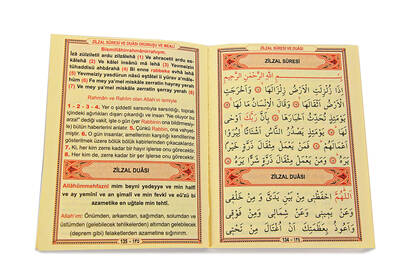 ZİLZAL SÛRESİ
بِسْمِ اللّٰهِ الرَّحْمٰنِ الرَّحِيمِ
اِذَا زُلْزِلَتِ الْاَرْضُ زِلْزَالَهَا وَاَخْرَجَتِ
الْاَرْضُ اَثْقَالَهَا وَقَالَ الْاِنْسَانُ مَا لَهَا
يَوْمَئِذٍ تُحَدِّثُ اَخْبَارَهَا بِاَنَّ رَبَّكَ اَوْحٰى
لَهَا يَوْمَئِذٍ يَصْدُرُ النَّاسُ اَشْتَاتًا لِيُرَوْا
اَعْمَالَهُمْ فَمَنْ يَعْمَلْ مِثْقَالَ ذَرَّةٍ خَيْرًا
يَرَهُ وَمَنْ يَعْمَلْ مِثْقَالَ ذَرَّةٍ شَرًّا يَرَهُ
ZİLZAL DUÂSI
اَللّٰهُمَّ احْفَظْنِي مِنْ بَيْنِ يَدَيَّ وَمِنْ خَلْفِي
وَعَنْ يَمِينِي وَعَنْ شِمَالِي وَمِنْ فَوْقِي
وَاَعُوذُ بِعَظَمَتِكَ اَنْ اُغْتَالَ مِنْ تَحْتِي
134 - ١٣٤
ZİLZAL SÛRESİ VE DUÂSI OKUNUŞU VE MEALİ
Bismillâhirrahmânirrahıym.
İzâ zülziletil ardu zilzâlehâ (1) Ve ahracetil ardu es-
kâlehâ (2) Ve kâlel insânü mâ lehâ (3) Yevmeizin
tühaddisü ahbârahâ (4) Bi enne rabbeke evhâ lehâ
(5) Yevmeiziy yasdürun nâsü eştâtel li yürav a'mâle-
hüm (6) Fe mey ya'mel miskâle zerratin hayray yerah
(7) Ve mey ya'mel miskâle zerratin şerray yerah (8)
Rahmân ve Rahîm olan Allah'ın ismiyle
1 - 2 - 3 - 4. Yer o şiddetli sarsıntısıyla sarsıldığı, toprak
içindeki ağırlıkları dışarı çıkardığı ve insan "Ne oluyor bu
arza!" dediği vakit, işte o gün (yer Rabbinin ona bildirmesiy-
le) bütün haberlerini anlatır. 5. Çünkü Rabbin, ona vahyet-
miştir. 6. O gün insanlar, amellerinin karşılığı kendilerine
gösterilmek üzere bölük bölük kabirlerinden çıkacaklardır.
7. Ki, her kim zerre kadar bir hayır işlerse onu görecektir.
8. Her kim de, zerre kadar bir şer işlerse onu görecektir.
ZİLZAL DUÂSI
Allâhümmehfaznî mim beyni yedeyye ve min halfî
ve ay yemînî ve an şimalî ve min fevkî ve e'ûzü bi
azametike en uğtale min tehtî.
Allah'ım: Önümden, arkamdan, sağımdan, solumdan ve
üstümden (gelebilecek tehlikelerden) altımdan gelebilecek
(deprem gibi) felaketlerden azametine sığınırım.
135 - ١٣٥